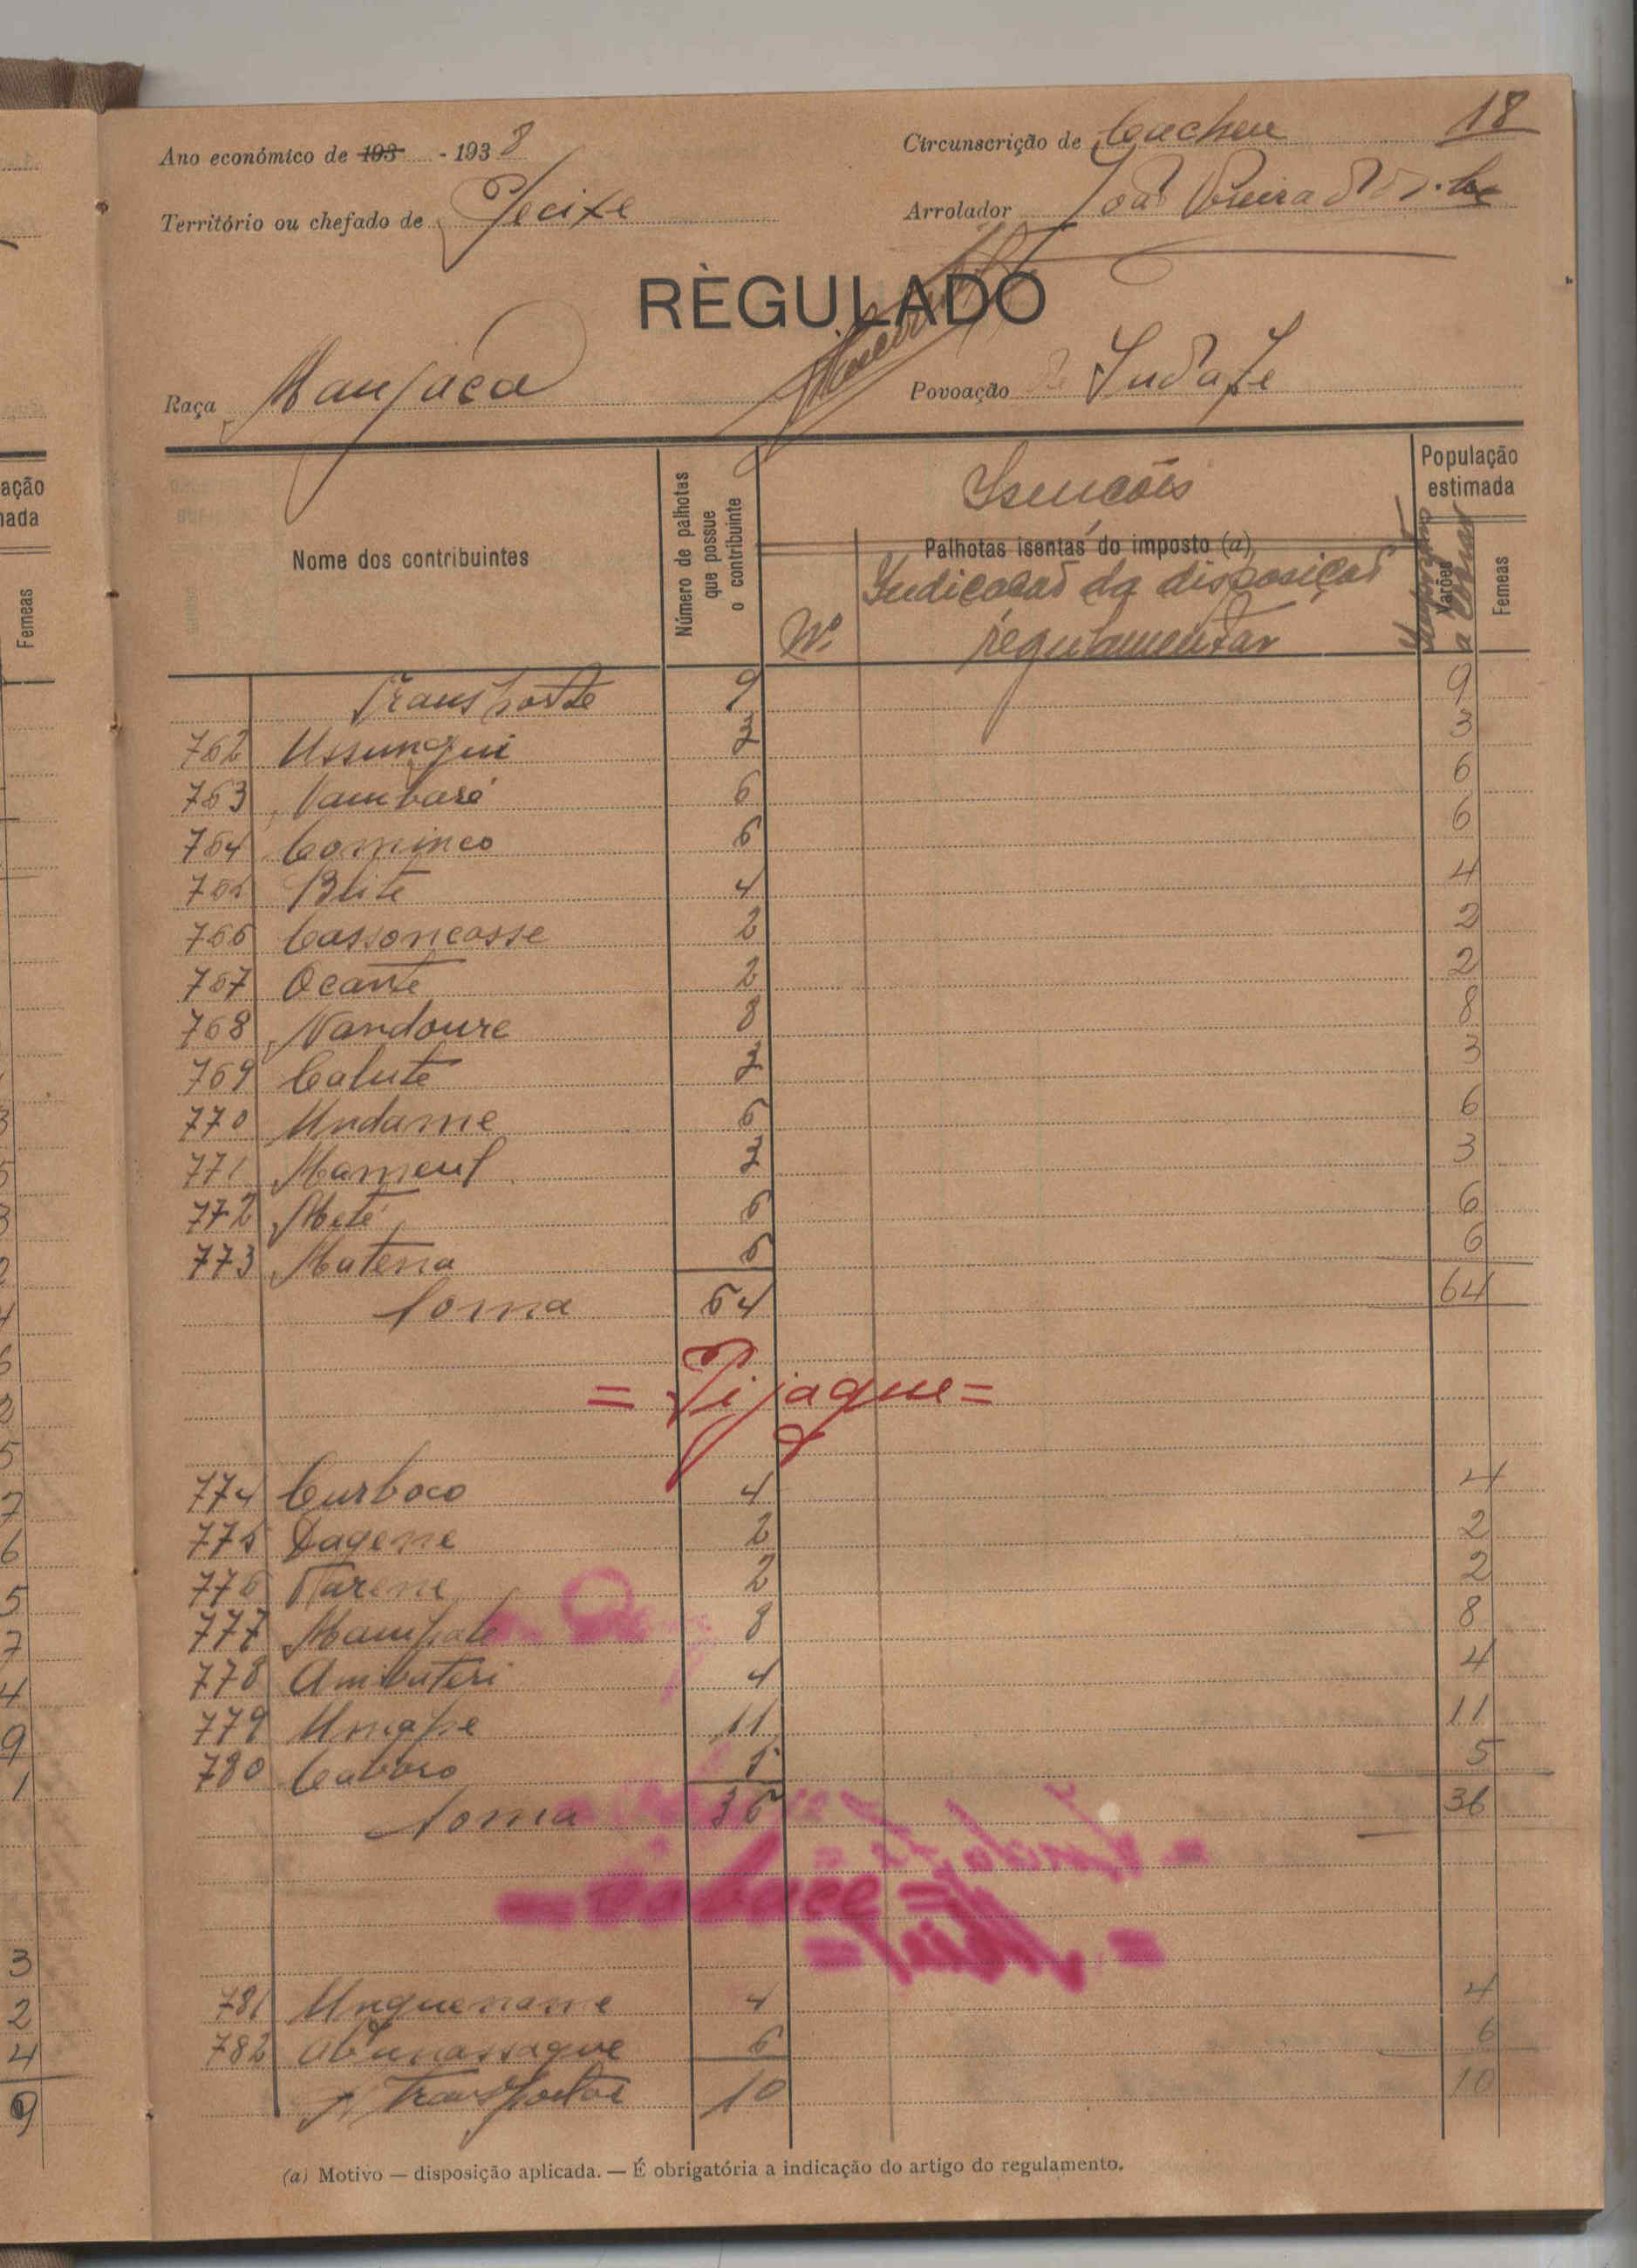 18
Ano económico de 193 - 1938 Circunscrição de Cacheu
Território ou chefado de Jecixe Arrolador João Vieira
REGULADO
Raça Manjaca Povoação de Indafe
Nome dos contribuintes
Número de palhotas que possue o contribuinte
Isencóis
Palhotas isentas do imposto (a)
Nº. Indicacao da disposiçao regulamentar
População estimada
Varões
a cobrar
Femeas
Transporte 9 9
762 Ussungui 3 3
763 Vambaré 6 6
764 Cominco 6 6
765 Blite 4 4
766 Cassoncasse 2 2
767 Ocante 2 2
768 Nandoure 8 8
769 Calute 3 3
770 Undame 6 6
771 Mameul 3 3
772 Meté 6 6
773 Matena 6 6
Soma 64 64
= Pijaque =
774 Curboco 4 4
775 Dagene 2 2
776 Narene 2 2
777 Mampale 8 8
778 Ambuteri 4 4
779 Umape 11 11
780 Caboio 5 5
Soma 36 36
781 Unquename 4 4
782 Abunassaque 6 6
A Transportar 10 10
(a) Motivo — disposição aplicada. — É obrigatória a indicação do artigo do regulamento.
ação
ada
Femeas